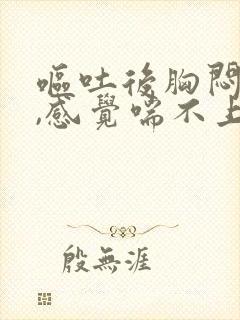 嘔吐後胸悶
,感覺喘不上
殷無涯